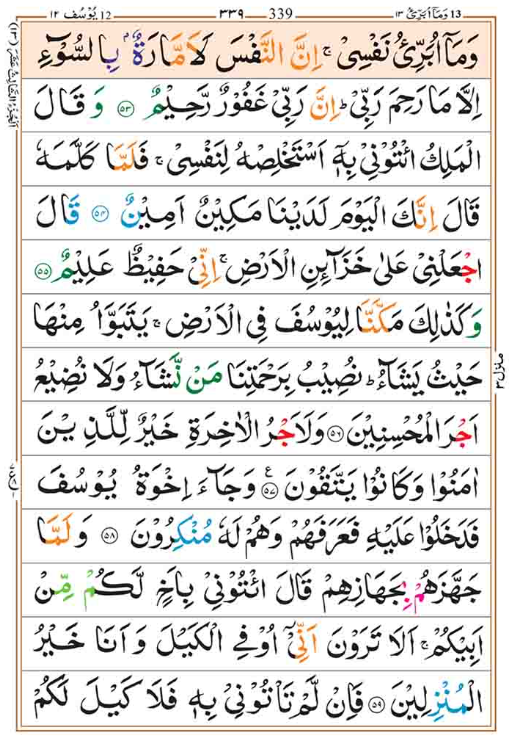 وَمَاۤ اُبَرِّئُ ۱۳ 13 ۳۳۹ 339 يُوْسُف ۱۲ 12
وَمَاۤ اُبَرِّئُ نَفْسِیْ ۚ اِنَّ النَّفْسَ لَاَمَّارَةٌۢ بِالسُّوْٓءِ
اِلَّا مَا رَحِمَ رَبِّیْ ؕ اِنَّ رَبِّیْ غَفُوْرٌ رَّحِیْمٌ ۵۳ وَ قَالَ
الْمَلِكُ ائْتُوْنِیْ بِهٖۤ اَسْتَخْلِصْهُ لِنَفْسِیْ ۚ فَلَمَّا كَلَّمَهٗ
قَالَ اِنَّكَ الْیَوْمَ لَدَیْنَا مَكِیْنٌ اَمِیْنٌ ۵۴ قَالَ
اجْعَلْنِیْ عَلٰى خَزَآىِٕنِ الْاَرْضِ ۚ اِنِّیْ حَفِیْظٌ عَلِیْمٌ ۵۵
وَ كَذٰلِكَ مَكَّنَّا لِیُوْسُفَ فِی الْاَرْضِ ۚ یَتَبَوَّاُ مِنْهَا
حَیْثُ یَشَآءُ ؕ نُصِیْبُ بِرَحْمَتِنَا مَنْ نَّشَآءُ وَلَا نُضِیْعُ
اَجْرَ الْمُحْسِنِیْنَ ۵۶ وَلَاَجْرُ الْاٰخِرَةِ خَیْرٌ لِّلَّذِیْنَ
اٰمَنُوْا وَكَانُوْا یَتَّقُوْنَ ۵۷ ع وَجَآءَ اِخْوَةُ یُوْسُفَ
فَدَخَلُوْا عَلَیْهِ فَعَرَفَهُمْ وَهُمْ لَهٗ مُنْكِرُوْنَ ۵۸ وَ لَمَّا
جَهَّزَهُمْ بِجَهَازِهِمْ قَالَ ائْتُوْنِیْ بِاَخٍ لَّكُمْ مِّنْ
اَبِیْكُمْ ۚ اَلَا تَرَوْنَ اَنِّیْۤ اُوْفِی الْكَیْلَ وَ اَنَا خَیْرُ
الْمُنْزِلِیْنَ ۵۹ فَاِنْ لَّمْ تَاْتُوْنِیْ بِهٖ فَلَا كَیْلَ لَكُمْ
منزل ۳